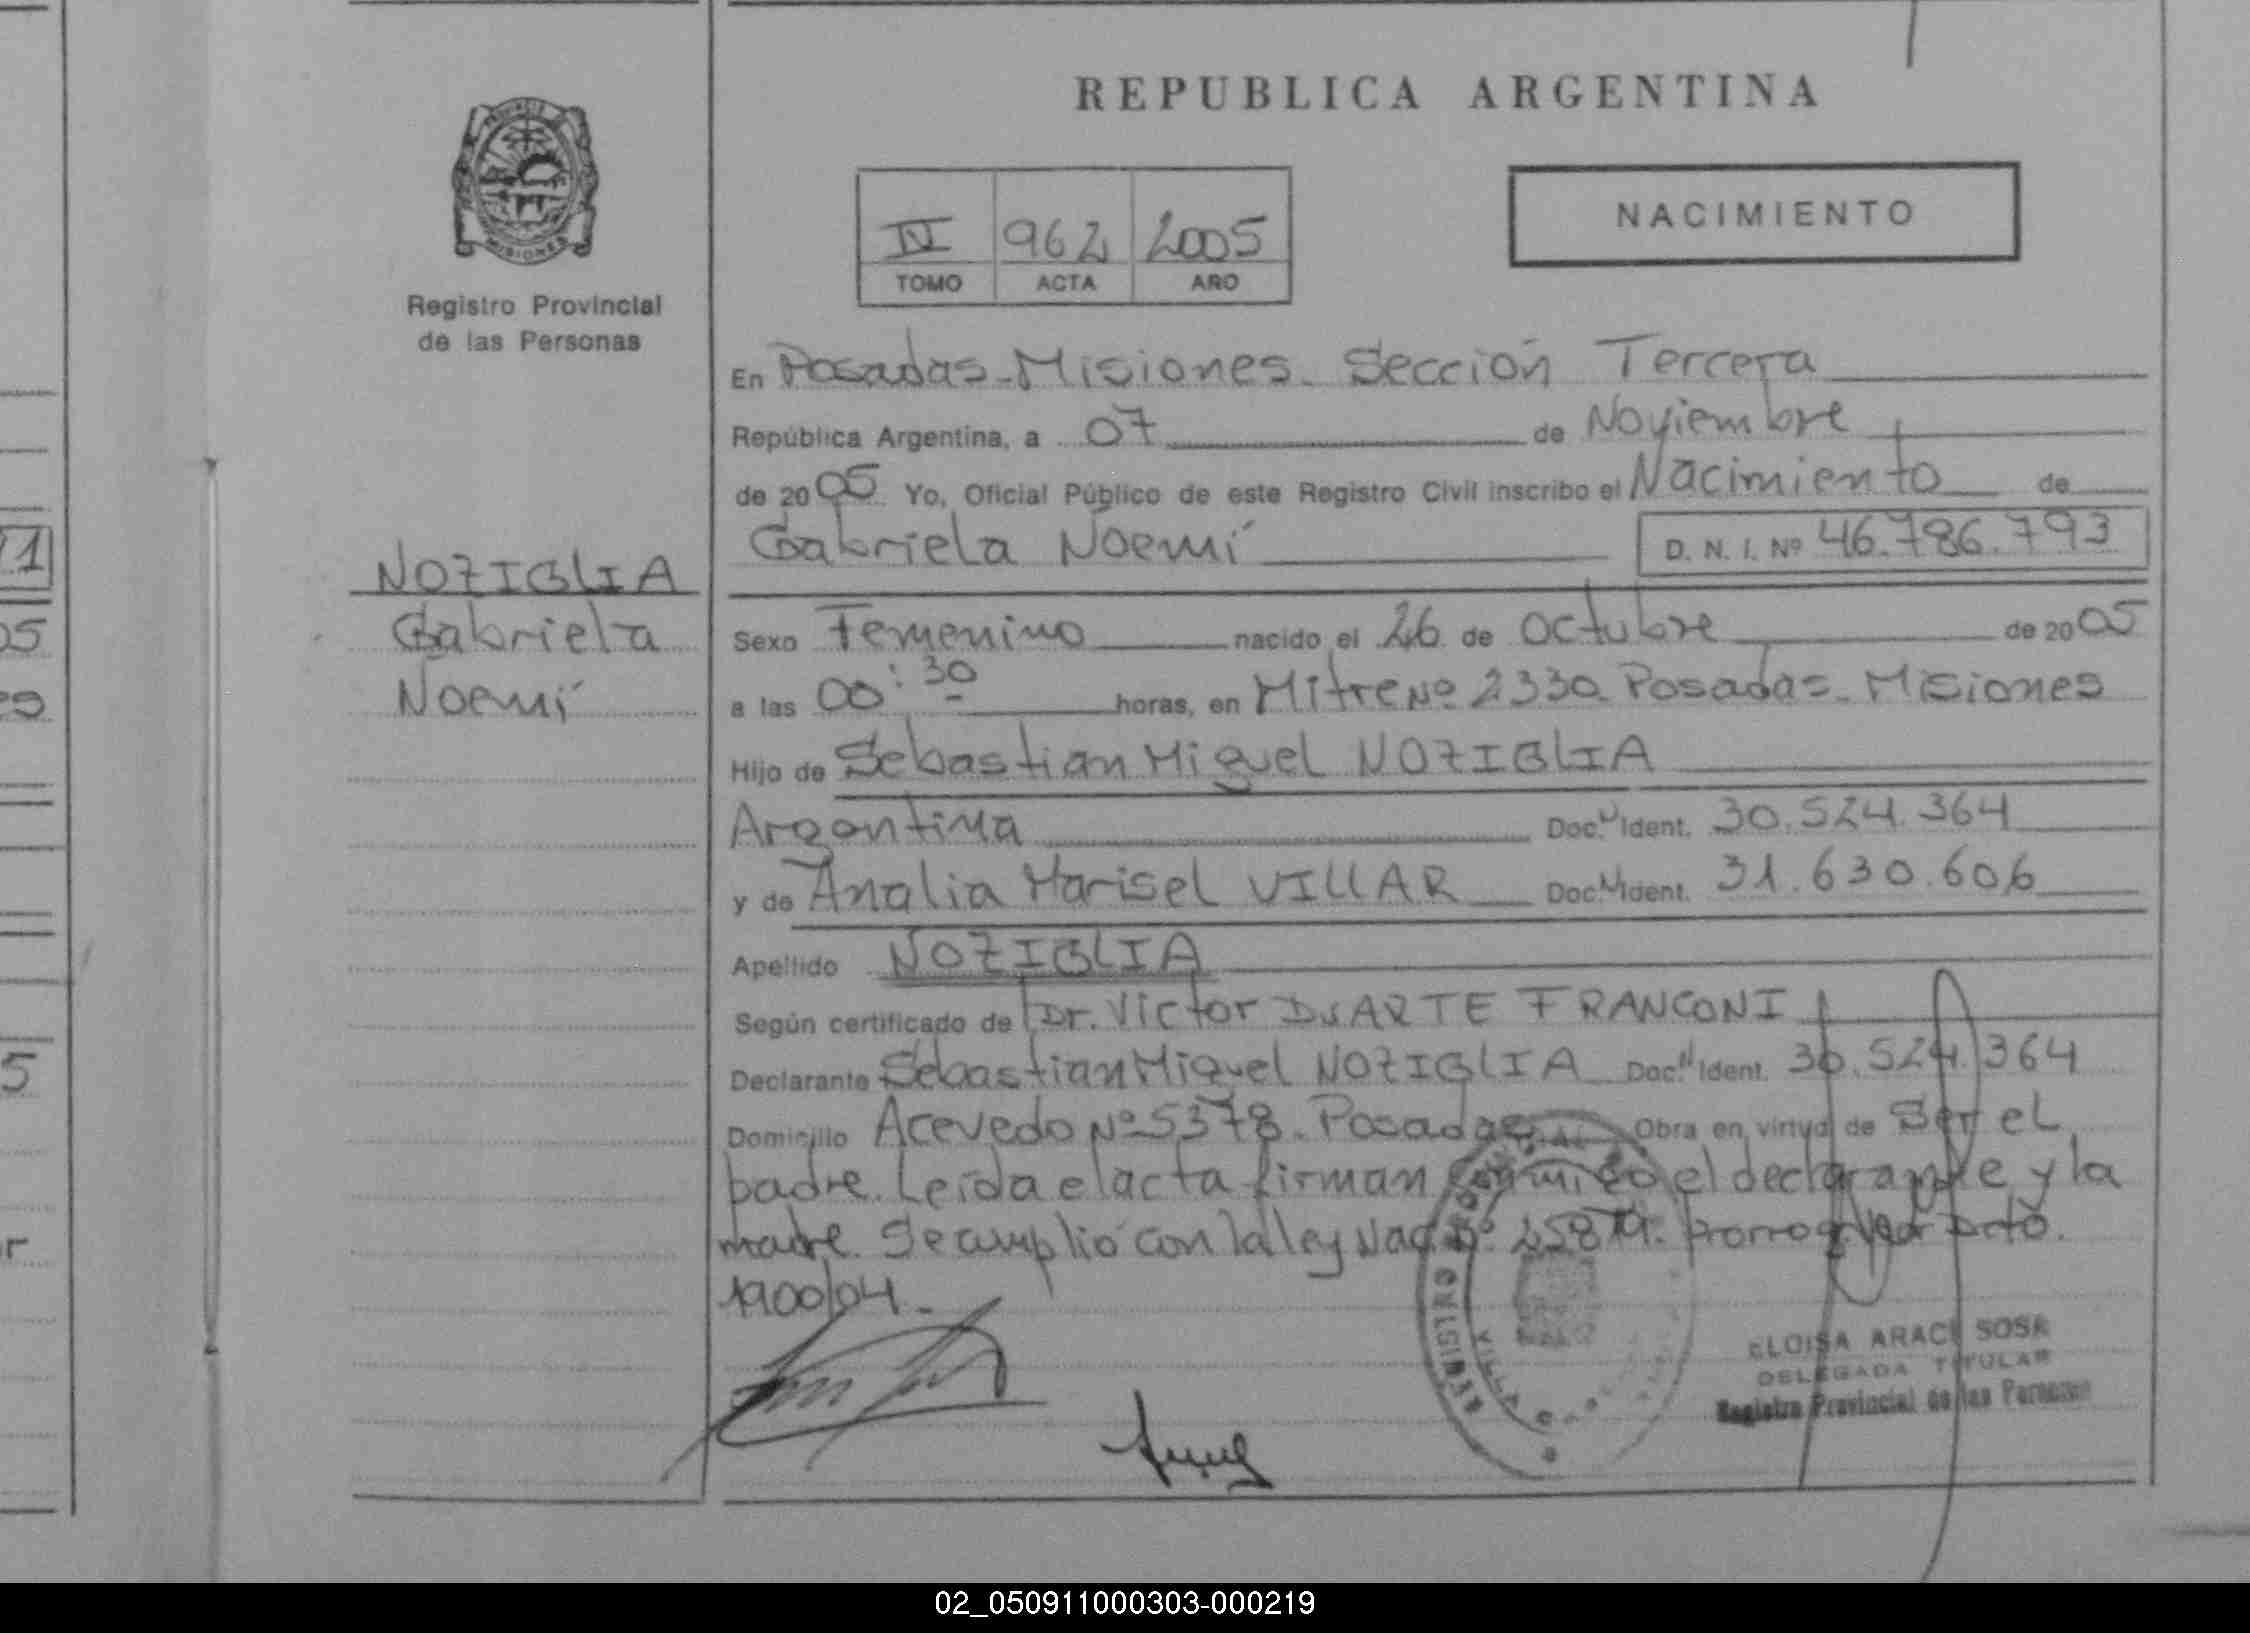 REPUBLICA ARGENTINA
PROVINCIA
MISIONES
Registro Provincial
de las Personas
IV 962 2005
TOMO ACTA AÑO
NACIMIENTO
En Posadas-Misiones. Sección Tercera
República Argentina, a 07 de Noviembre
de 2005 Yo, Oficial Público de este Registro Civil inscribo el Nacimiento de
Gabriela Noemí D. N. I. Nº 46.786.793
NOZIGLIA
Gabriela
Noemí
Sexo Femenino nacido el 26 de Octubre de 2005
a las 00:30 horas, en Mitre Nº 2330 Posadas-Misiones
Hijo de Sebastian Miguel NOZIGLIA
Argentina Doc. N Ident. 30.524.364
y de Analia Marisel VILLAR Doc. N Ident. 31.630.606
Apellido NOZIGLIA
Según certificado de Dr. Victor DUARTE FRANCONI
Declarante Sebastian Miguel NOZIGLIA Doc. N Ident. 30.524.364
Domicilio Acevedo Nº 5378. Posadas Obra en virtud de Ser el
padre. Leída el acta firman conmigo el declarante y la
madre. Se cumplió con la ley Nac. Nº 25819. Prorrog. por Dcto.
1900/04.-
ELOISA ARACI SOSA
DELEGADA TITULAR
Registro Provincial de las Personas
71
05
es
5
r
02_050911000303-000219